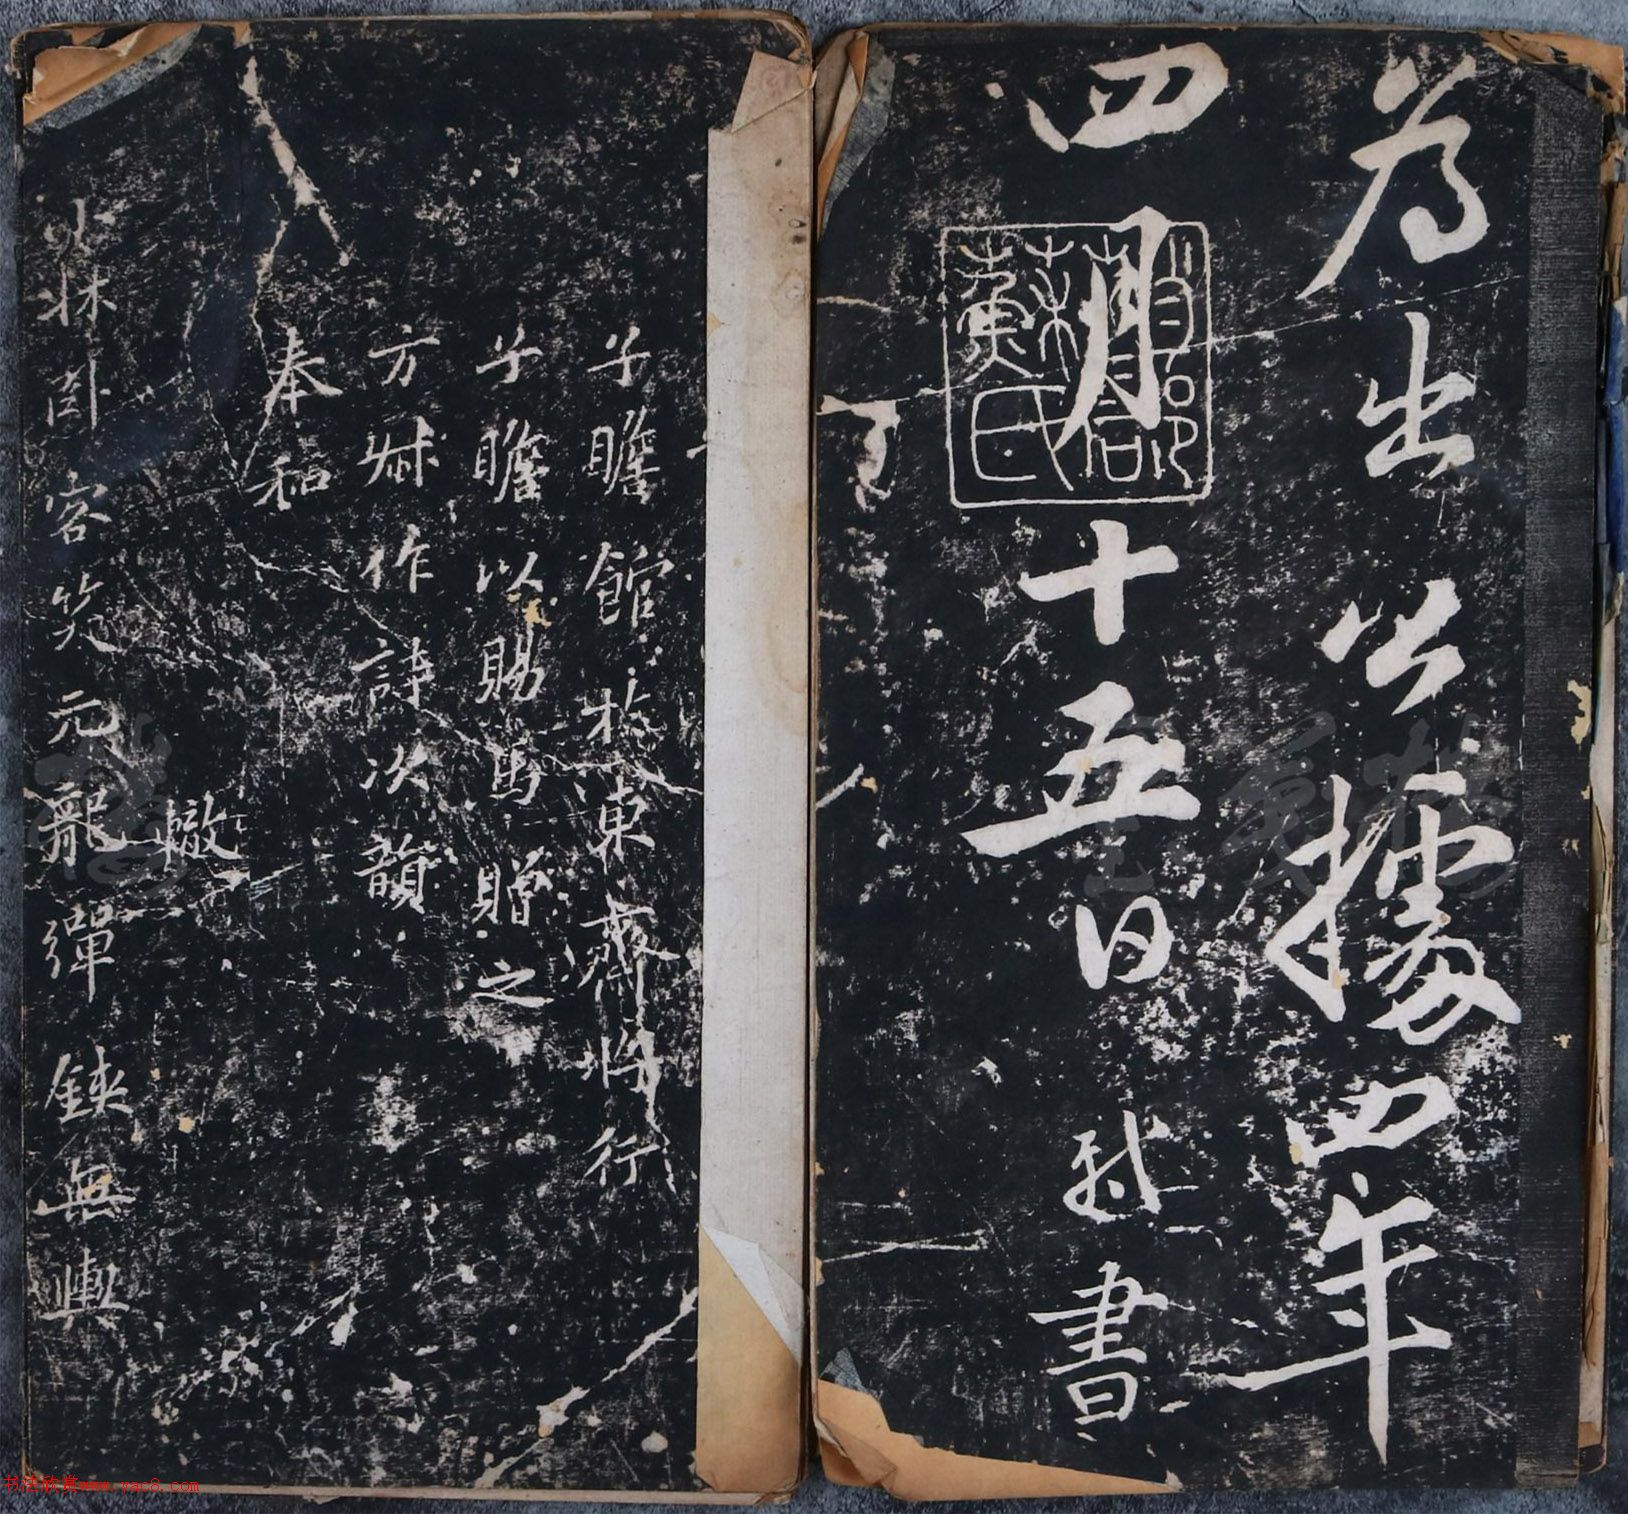 為出公據四年
四月十五日軾書
眉陽蘇軾
子瞻館於東齋將行
子瞻以賜馬贈之
方叔作詩次韻
奉和
轍
小床臥客笑元龍彈鋏無輿
书法欣赏www.yac8.com